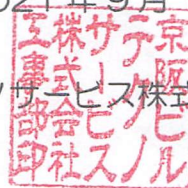 021年9月
ノサービス株式
京阪ビル
テクノ
サービス
株式会社
工事部印